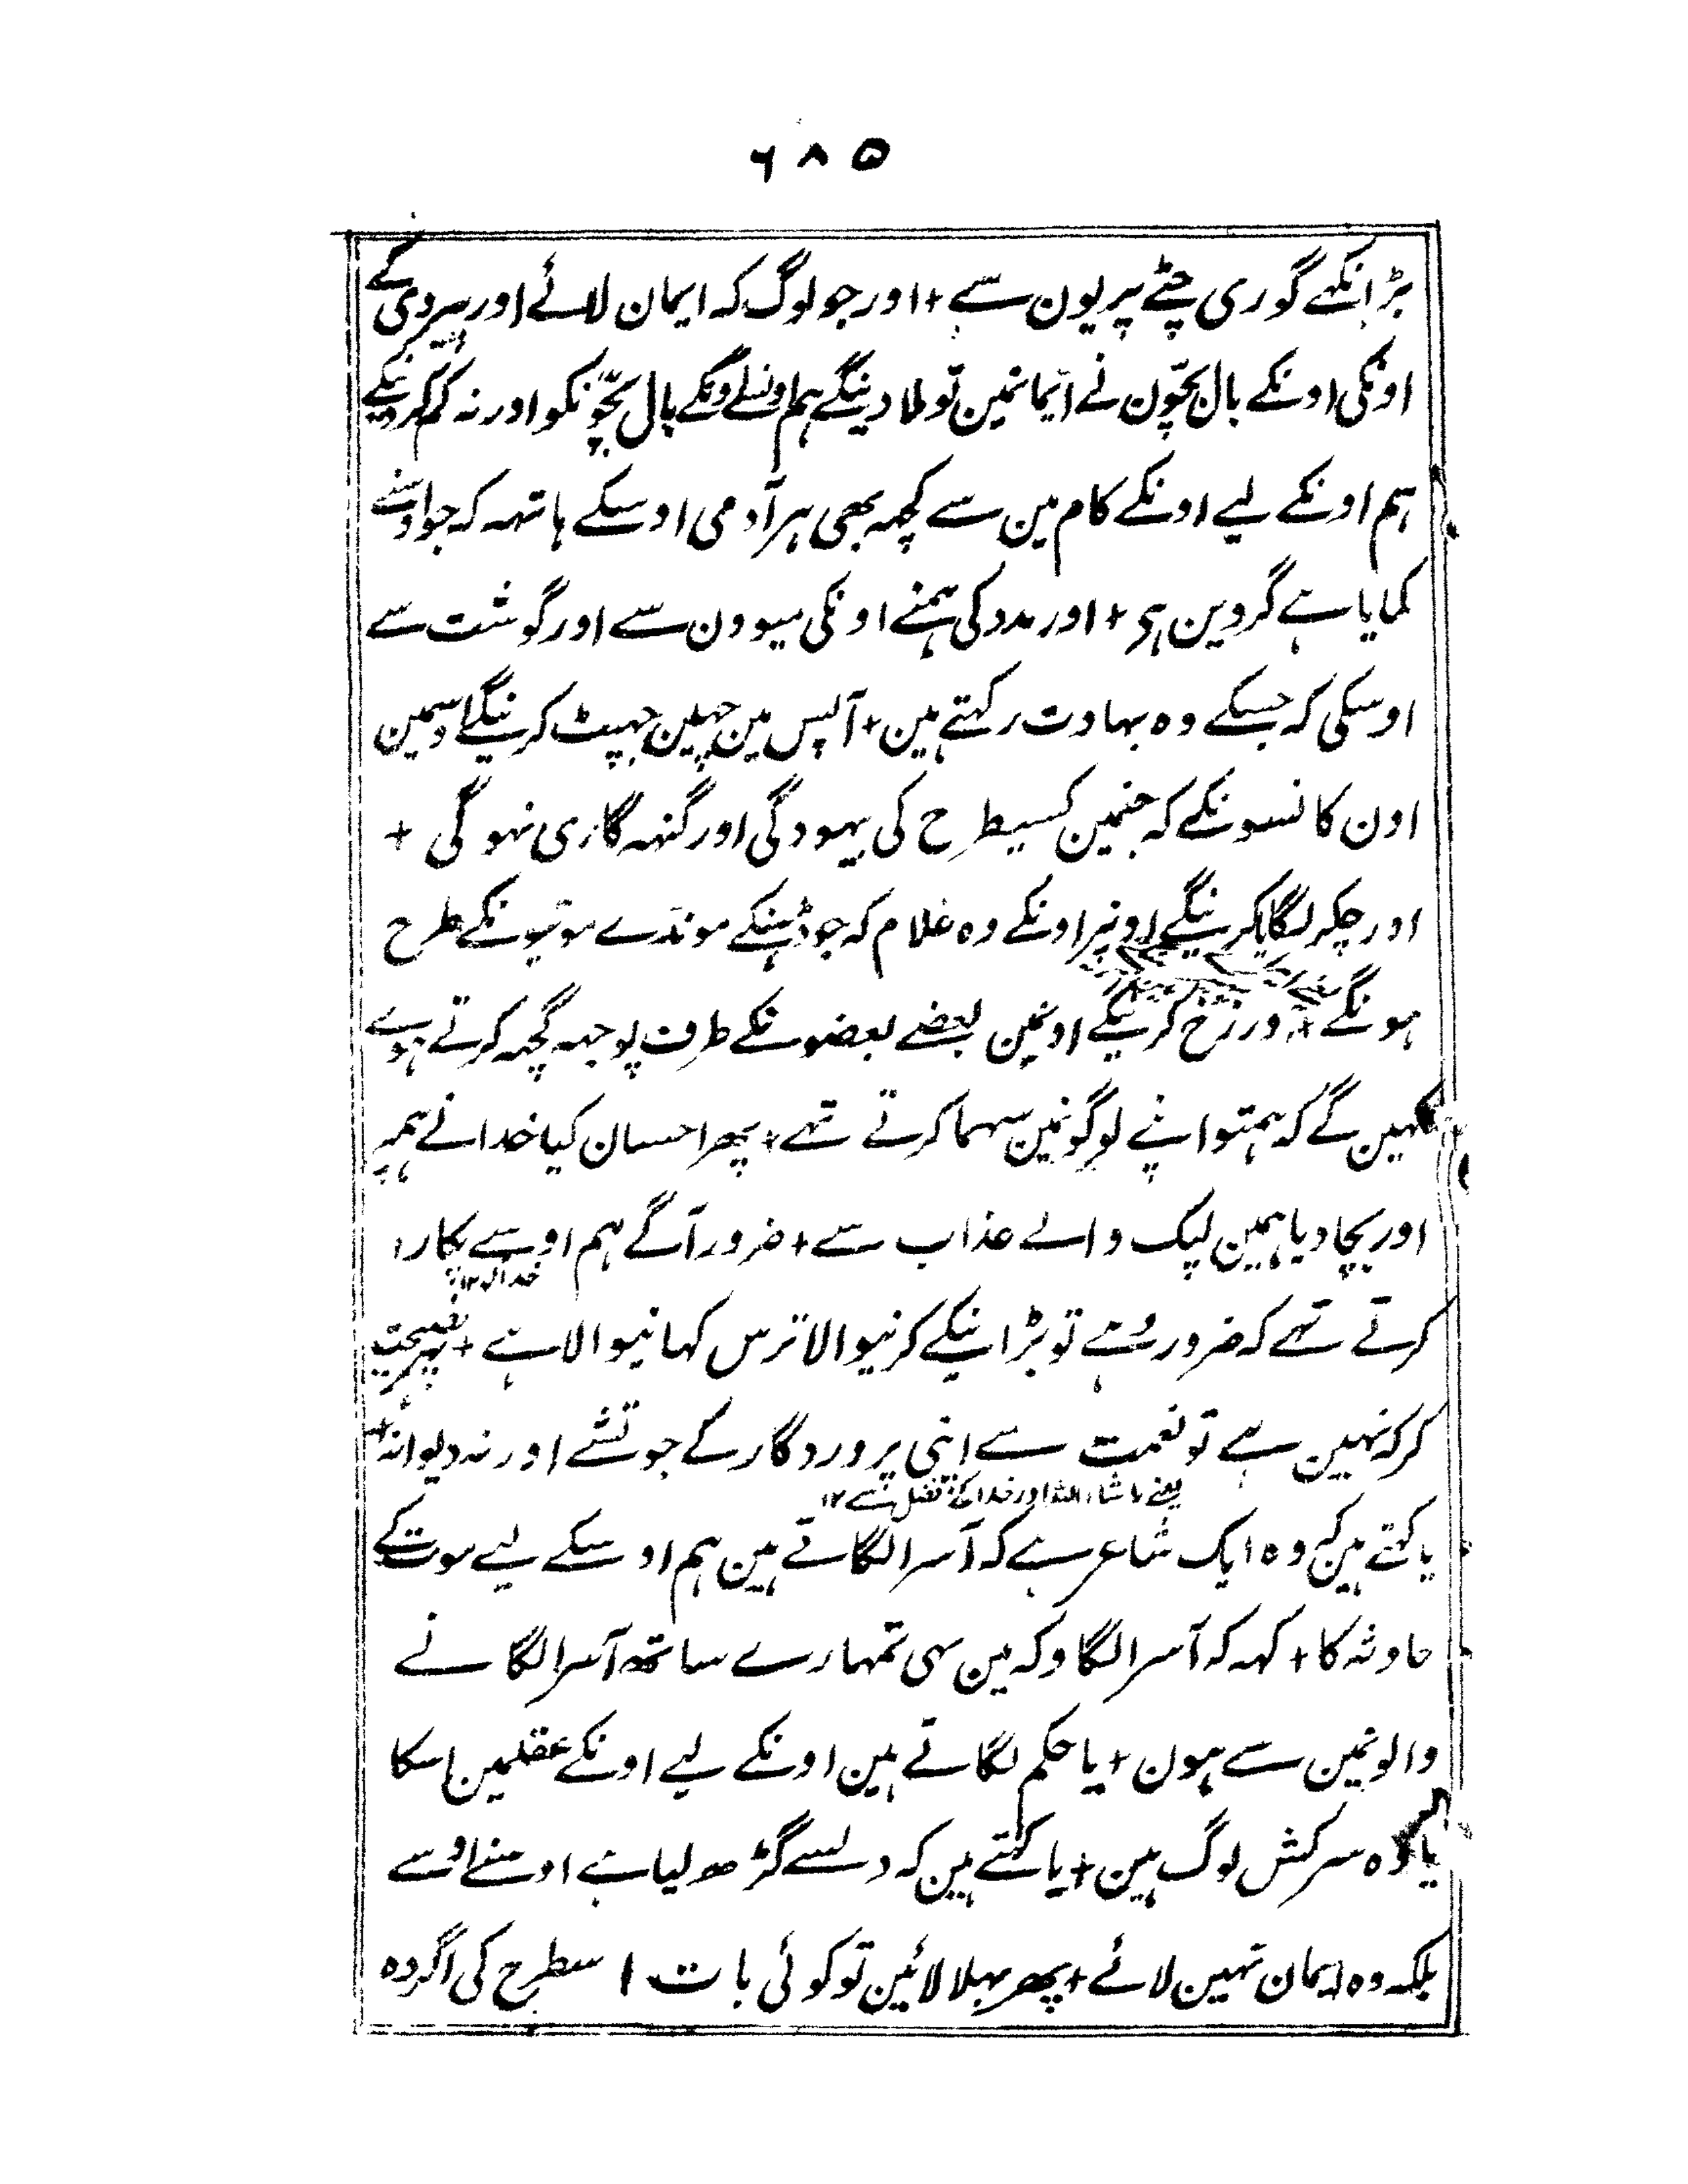 ۶۸۵
بڑانکہے گوری چٹے پریون سے + اور جو لوگ کہ ایمان لائے اور پیردی کے
اونکی اونکے بال بچّون نے ایمانمین تو ملا دینگے ہم اونسے اونکے بال بچّونکو اور نہ کم کردینگے
ہم اونکے لیے اونکے کام مین سے کچہہ بھی ہر آدمی اوسکے ہاتہہ کہ جو اوسنے
کمایا ہے گروین ہی + اور مدد کی ہمنے اونکی میوون سے اور گوشت سے
اوسکی کہ جسکے وہ بہاوت رکہتے ہین + آپس مین چہین جہپٹ کرینگے اوسمین
اون کانسونکے کہ جنمین کسیطرح کی بیہودگی اور گنہہ گاری نہوگی +
اور چکر لگایا کرینگے اونپر اونکے وہ غلام کہ جو ڈہنکے موندے موتیونکے طرح
ہونگے + ورزخ کرینگے اونمین بعضے بعضونکے طرف پوچہہ گچہہ کرتے ہوے
کہین گے کہ ہمتو اپنے لوگونمین سہما کرتے تہے + پھر احسان کیا خدا نے ہمپر
اور بچا دیا ہمین لپک والے عذاب سے + ضرور آگے ہم اوسے پکارا
خدا کو ۱۲
کرتے تہے کہ ضرور وہے تو بڑا نیکے کرنیوالا ترس کہانیوالا ہے + پہر نصیحت
کر کہ نہین ہے تو نعمت سے اپنی پروردگار کے جوتشے اور نہ دیوانہ +
یعنے ماشاء اللہ اور خدا کے فضل سے ۱۲
یا کہتے ہین کہ وہ ایک شاعر ہے کہ آسرا لگاتے ہین ہم اوسکے لیے موت کے
حاوثہ کا + کہہ کہ آسرا لگاو کہ مین بہی تمہارے ساتھ آسرا لگانے
والونمین سے ہون + یا حکم لگاتے ہین اونکے لیے اونکے عقلمین اسکا
یا وہ سرکش لوگ ہین + یا کہتے ہین کہ دلسے گڑھ لیا ہے اوسنے اوسے
بلکہ وہ ایمان نہین لائے + پھر بہلا لائین تو کوئی بات اسطرح کی اگر وہ